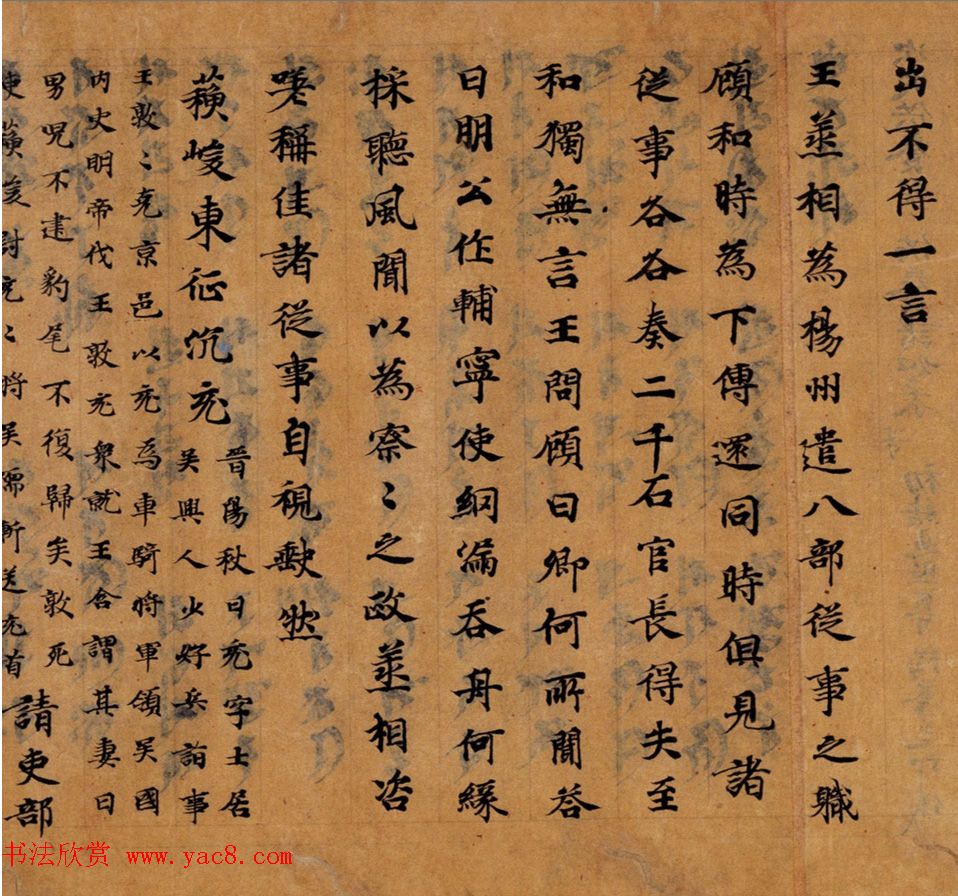 出不得一言
王丞相為楊州遣八部從事之職
顧和時為下傳還同時俱見諸
從事各各奏二千石官長得失至
和獨無言王問顧曰卿何所聞荅
曰明公作輔寧使網漏吞舟何緣
採聽風聞以為察〻之政丞相咨
嗟稱佳諸從事自視缺然
蘓峻東征沉充
晉陽秋曰充字士居
吴興人少好兵諂事
王敦〻克京邑以充為車騎將軍領吴國
内史明帝伐王敦充衆就王含謂其妻曰
男兒不建豹尾不復歸矣敦死
使蘓峻討充〻將吴儒斬送充首
請吏部
书法欣赏 www.yac8.com